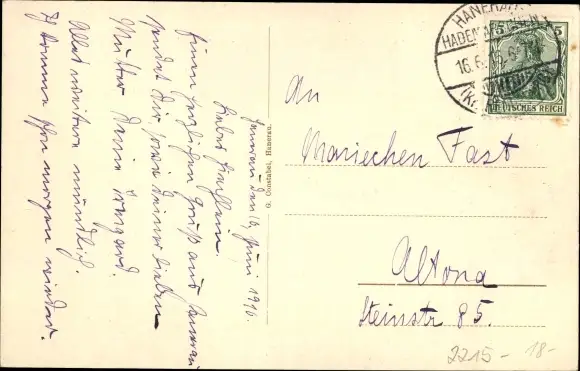 Hanerau den 16. Juni 1916.
Liebes Mariechen.
Einen herzlichen Gruß aus Hanerau
sendet Dir, sowie Deiner lieben
Mutter Deine Irmgard.
Alles weitere mündlich.
Ich komme schon morgen wieder.
G. Constabel, Hanerau.
HANERAU-
HADEMARSCHEN
16.6.16.
5
DEUTSCHES REICH
An
Mariechen Fast
Altona
Steinstr 85.
2215- 18-